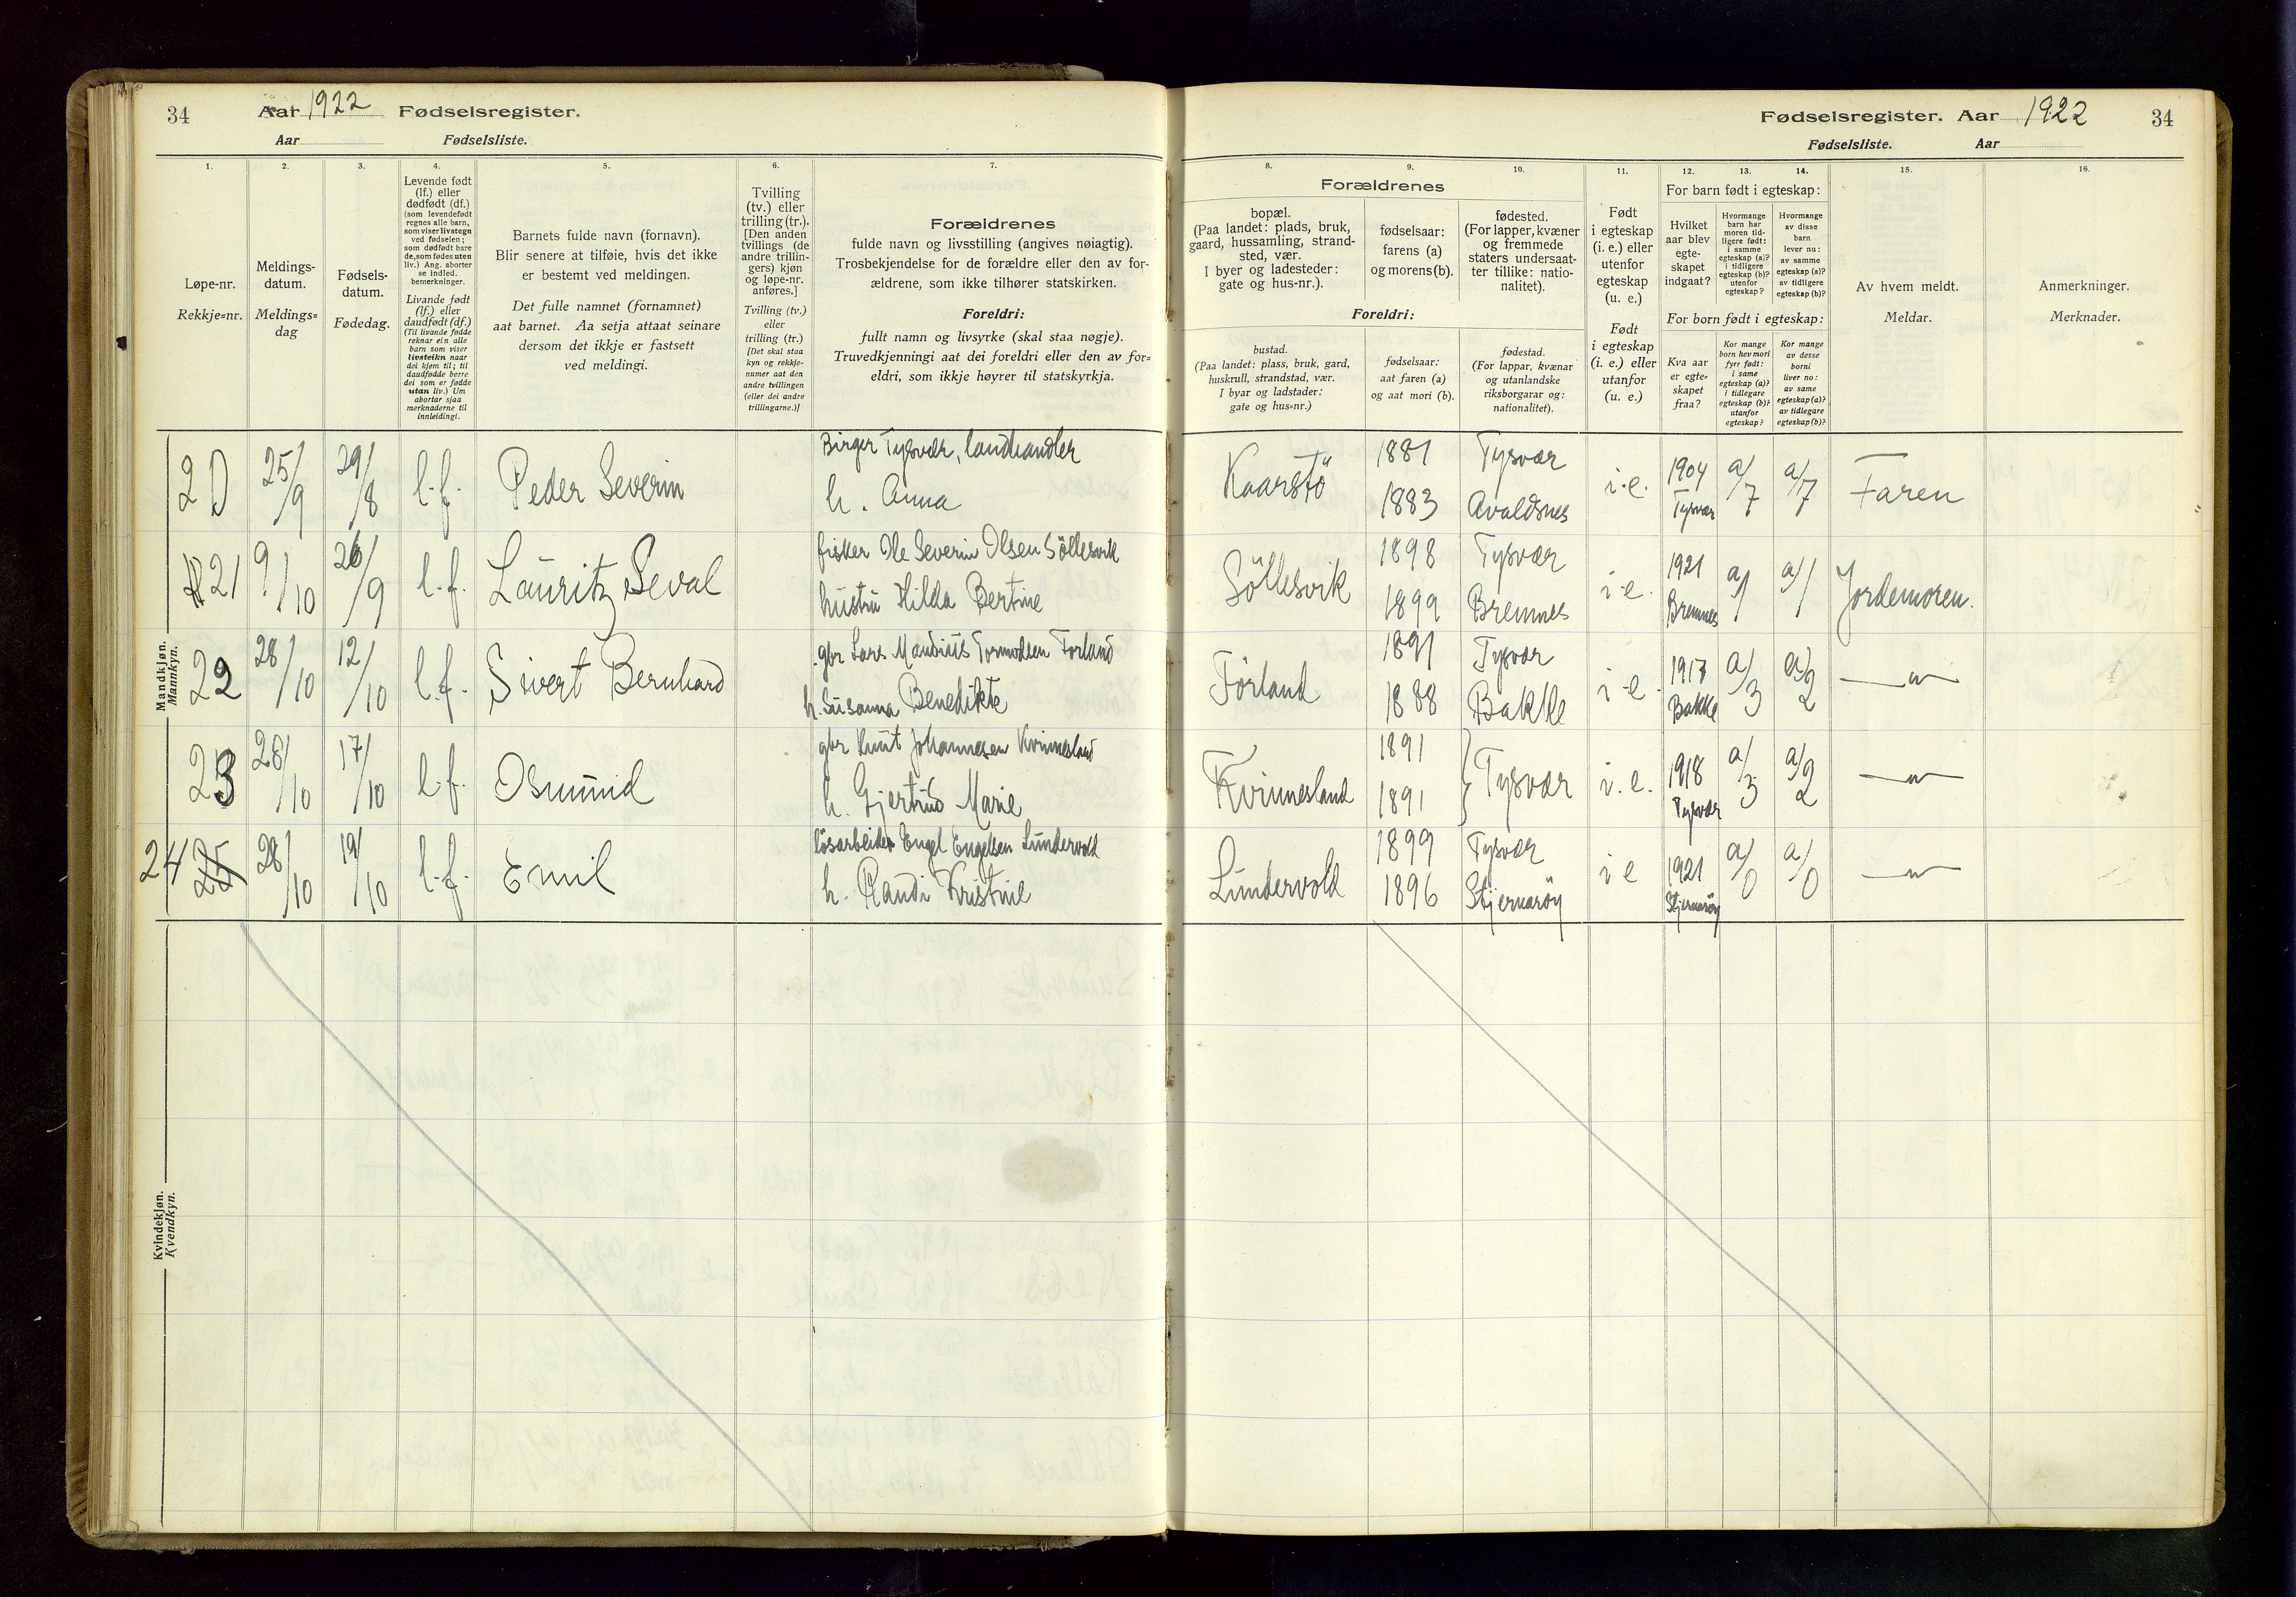 34 Aar 1922 Fødselsregister.
Aar Fødselsliste.
1. 2. 3. 4. 5. 6. 7.
Løpe-nr.
Rekkje=nr.
Meldings-
datum.
Meldings=
dag
Fødsels-
datum.
Fødedag.
Levende født
(lf.) eller
dødfødt (df.)
(som levendefødt
regnes alle barn,
som viser livstegn
ved fødselen;
som dødfødt bare
de, som fødes uten
liv.) Ang. aborter
se indled.
bemerkninger.
Livande født
(lf.) eller
daudfødt (df.)
(Til livande fødde
reknar ein alle
barn som viser
livsteikn naar
dei kjem til; til
daudfødde berre
dei som er fødde
utan liv.) Um
abortar sjaa
merknaderne til
innleidingi.
Barnets fulde navn (fornavn).
Blir senere at tilføie, hvis det ikke
er bestemt ved meldingen.
Det fulle namnet (fornamnet)
aat barnet. Aa setja attaat seinare
dersom det ikkje er fastsett
ved meldingi.
Tvilling
(tv.) eller
trilling (tr.).
[Den anden
tvillings (de
andre trillin-
gers) kjøn
og løpe-nr.
anføres.]
Tvilling (tv.)
eller
trilling (tr.)
[Det skal staa
kyn og rekkje-
numer aat den
andre tvillingen
(eller dei andre
trillingarne.)]
Forældrenes
fulde navn og livsstilling (angives nøiagtig).
Trosbekjendelse for de forældre eller den av for-
ældrene, som ikke tilhører statskirken.
Foreldri:
fullt namn og livsyrke (skal staa nøgje).
Truvedkjenningi aat dei foreldri eller den av for=
eldri, som ikkje høyrer til statskyrkja.
Mandkjøn.
Mannkyn.
20 25/9 29/8 l.f. Peder Severin Birger Tysvær, landhandler
h. Anna
21 9/10 26/9 l.f. Lauritz Seval fisker Ole Severin Olsen Söllesvik
hustru Hilda Bertine
22 28/10 12/10 l.f. Sivert Bernhard gbr Lars Maudius Tormodsen Forland
h. Susanna Benedikte
23 28/10 17/10 l.f. Osmund gbr Knut Johannesen Kvinnesland
h. Gjertrud Marie
24 25 28/10 19/10 l.f. Emil løsarbeider Engel Engelsen Lundervold
h. Randi Kristine
Kvindekjøn.
Kvendkyn.
Fødselsregister. Aar 1922 34
Fødselsliste. Aar
8. 9. 10. 11. 12. 13. 14. 15. 16.
Forældrenes
bopæl.
(Paa landet: plads, bruk,
gaard, hussamling, strand-
sted, vær.
I byer og ladesteder:
gate og hus-nr.).
fødselsaar:
farens (a)
og morens (b).
fødested.
(For lapper, kvæner
og fremmede
staters undersaat-
ter tillike: natio-
nalitet).
Foreldri:
bustad.
(Paa landet: plass, bruk, gard,
huskrull, strandstad, vær.
I byar og ladstader:
gate og hus=nr.)
fødselsaar:
aat faren (a)
og aat mori (b).
fødestad.
(For lappar, kvænar
og utanlandske
riksborgarar og:
nationalitet).
Født
i egteskap
(i. e.) eller
utenfor
egteskap
(u. e.)
Født
i egteskap
(i. e.) eller
utanfor
(u. e.)
For barn født i egteskap:
Hvilket
aar blev
egte-
skapet
indgaat?
Hvormange
barn har
moren tid-
ligere født:
i samme
egteskap (a)?
i tidligere
egteskap (b)?
utenfor
egteskap?
Hvormange
av disse
barn
lever nu:
av samme
egteskap (a)?
av tidligere
egteskap (b)?
For born født i egteskap:
Kva aar
er egte=
skapet
fraa?
Kor mange
born hev mori
fyrr født:
i same
egteskap (a)?
i tidlegare
egteskap (b)?
utanfor
egteskap?
Kor mange
av desse
borni
liver no:
av same
egteskap (a)?
av tidlegare
egteskap (b)?
Av hvem meldt.
Meldar.
Anmerkninger.
Merknader.
Kaarstö 1881 Tysvær i.e. 1904 a/7 a/7 Faren
1883 Avaldsnes Tysvær
Söllesvik 1898 Tysvær i.e. 1921 a/1 a/1 Jordemoren.
1899 Bremnes Bremnes
Förland 1891 Tysvær i.e. 1917 a/3 a/2 —"—
1888 Bakke Bakke
Kvinnesland 1891 Tysvær i.e. 1918 a/3 a/2 —"—
1891 Tysvær
Lundervold 1899 Tysvær i e 1921 a/0 a/0 —"—
1896 Stjernaröy Stjernaröy